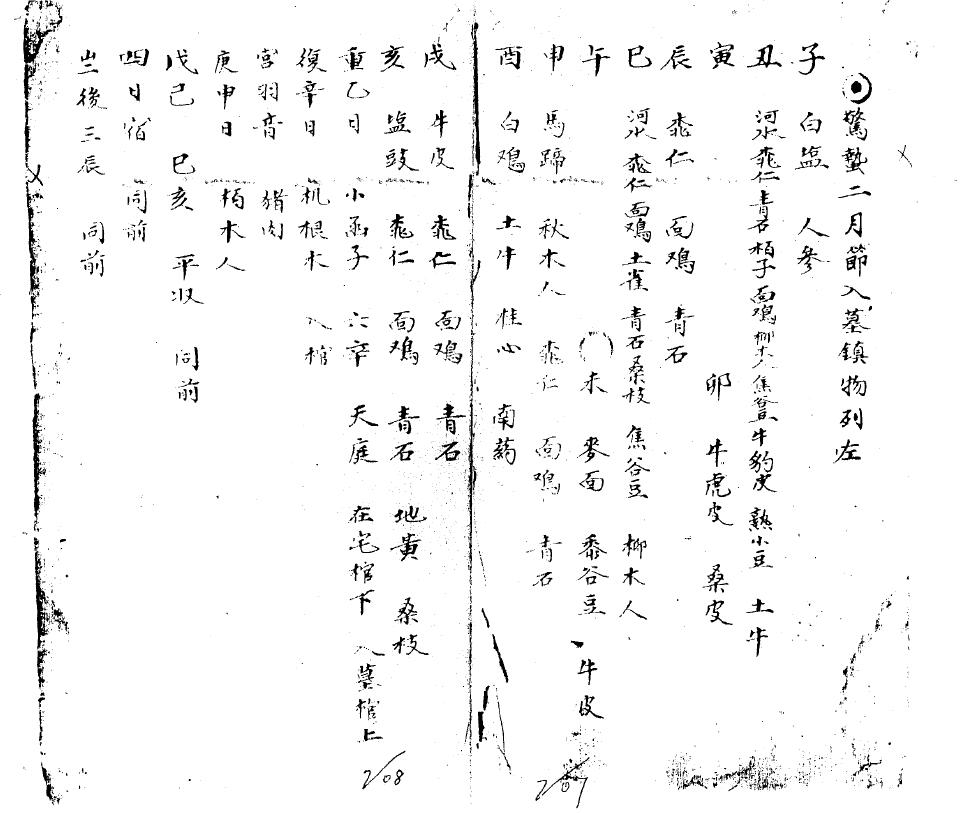 驚蟄二月節入墓鎮物列左
子 白盐 人參
丑 河水 桃仁 青石 柏子 面鳮 柳木人 焦谷豆 牛豹皮 熟小豆 土牛
寅 卯 牛虎皮 桑皮
辰 桃仁 面鳮 青石
巳 河水 桃仁 面鳮 土雀 青石 桑枝 焦谷豆 柳木人
午 未 麥面 黍谷豆 牛皮
申 馬蹄 秋木人 桃仁 面鳮 青石
酉 白鳮 土牛 桂心 南药
戌 牛皮 桃仁 面鳮 青石
亥 盐豉 桃仁 面鳮 青石 地黄 桑枝
重乙日 小函子 六卒 天庭 在宅棺下 入墓棺上
復辛日 机根木 入棺
宫羽音 猪肉
庚申日 柏木人
戊己 巳亥 平收 同前
四日宿 同前
出後三辰 同前
207
208